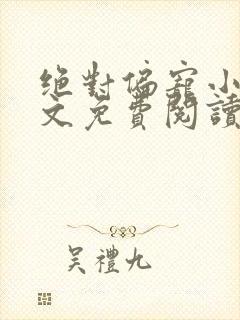 絕對偏寵小
文免費閱讀
吳禮九